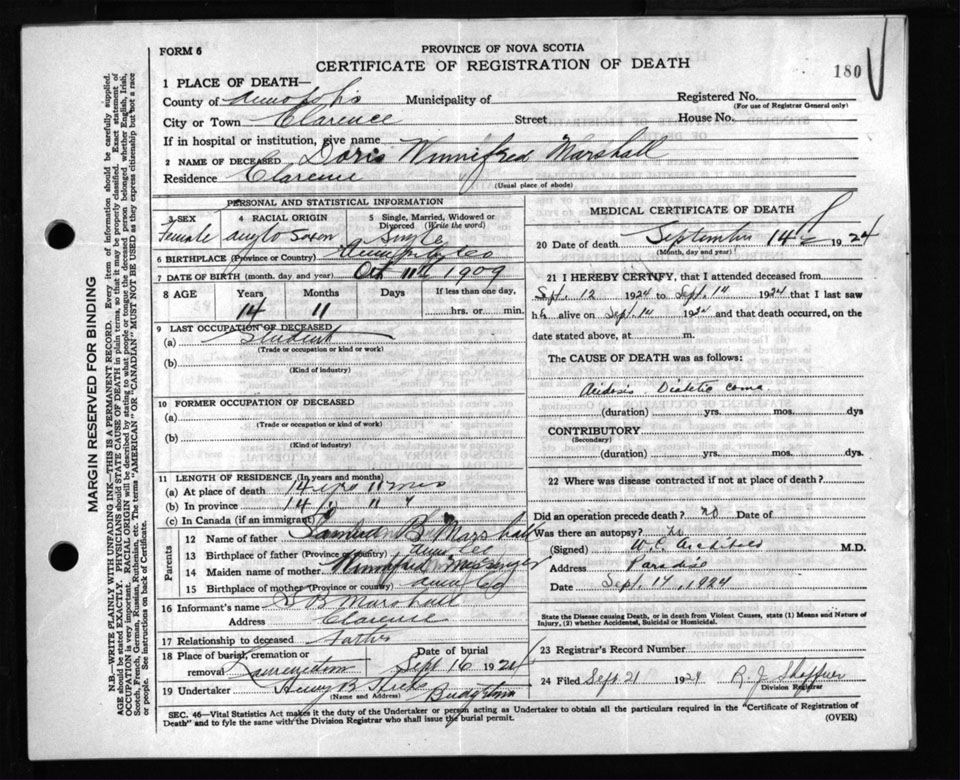 FORM 6
PROVINCE OF NOVA SCOTIA
CERTIFICATE OF REGISTRATION OF DEATH
180
1 PLACE OF DEATH—
County of Annapolis Municipality of Registered No.
(For use of Registrar General only)
City or Town Clarence Street House No.
If in hospital or institution, give name
2 NAME OF DECEASED Doris Winnifred Marshall
Residence Clarence
(Usual place of abode)
PERSONAL AND STATISTICAL INFORMATION
3 SEX Female
4 RACIAL ORIGIN Anglo Saxon
5 Single, Married, Widowed or Divorced (Write the word) Single
6 BIRTHPLACE (Province or Country) Annapolis Co
7 DATE OF BIRTH (month, day and year) Oct 11th 1909
8 AGE Years Months Days If less than one day,
14 11 hrs. or min.
9 LAST OCCUPATION OF DECEASED
(a) Student
(Trade or occupation or kind or work)
(b)
(Kind of industry)
10 FORMER OCCUPATION OF DECEASED
(a)
(Trade or occupation or kind or work)
(b)
(Kind of industry)
11 LENGTH OF RESIDENCE (In years and months)
(a) At place of death 14 yrs 11 mos
(b) In province 14 " 11 "
(c) In Canada (if an immigrant)
Parents
12 Name of father Samuel B Marshall
13 Birthplace of father (Province or country) Ann Co
14 Maiden name of mother Winnifred Messenger
15 Birthplace of mother (Province or country) Ann Co
16 Informant's name S B Marshall
Address Clarence
17 Relationship to deceased Father
18 Place of burial, cremation or removal Lawrencetown
Date of burial Sept 16 1924
19 Undertaker Henry B Hicks Bridgetown
(Name and Address)
MEDICAL CERTIFICATE OF DEATH
20 Date of death September 14th 1924
(Month, day and year)
21 I HEREBY CERTIFY, that I attended deceased from
Sept. 12 1924 to Sept. 14 1924 that I last saw
h alive on Sept. 14 1924 and that death occurred, on the
date stated above, at m.
The CAUSE OF DEATH was as follows:
Acidosis Diabetic Coma
(duration) yrs. mos. dys
CONTRIBUTORY
(Secondary)
(duration) yrs. mos. dys.
22 Where was disease contracted if not at place of death?
Did an operation precede death? no Date of
Was there an autopsy? no
(Signed) Archibald M.D.
Address Paradise
Date Sept. 17, 1924
State the Disease causing Death, or in death from Violent Causes, state (1) Means and Nature of
Injury, (2) whether Accidental, Suicidal or Homicidal.
23 Registrar's Record Number
24 Filed Sept 21 1924 R. J. Shaffner
Division Registrar
SEC. 46—Vital Statistics Act makes it the duty of the Undertaker or person acting as Undertaker to obtain all the particulars required in the "Certificate of Registration of
Death" and to fyle the same with the Division Registrar who shall issue the burial permit. (OVER)
MARGIN RESERVED FOR BINDING
N.B—WRITE PLAINLY WITH UNFADING INK—THIS IS A PERMANENT RECORD. Every item of information should be carefully supplied.
AGE should be stated EXACTLY. PHYSICIANS should STATE CAUSE OF DEATH in plain terms, so that it may be properly classified. Exact statement of
OCCUPATION is very important. RACIAL ORIGIN will be described by stating to what people or tongue the deceased person belonged, whether English, Irish,
Scotch, French, German, Russian, Ruthenian, etc. The terms "AMERICAN" OR "CANADIAN" MUST NOT BE USED as they express citizenship but not a race
or people. See instructions on back of Certificate.